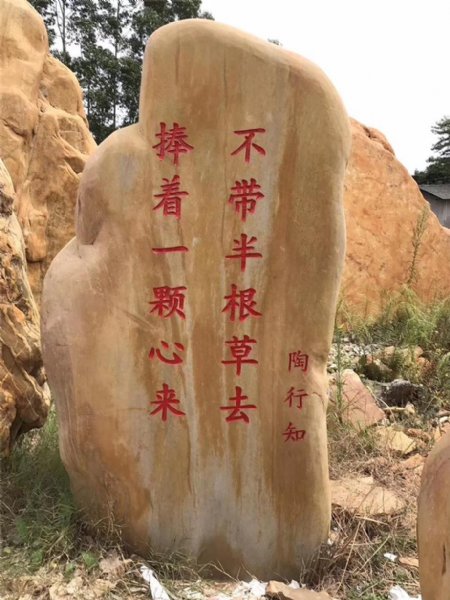 捧着一颗心来
不带半根草去
陶行知